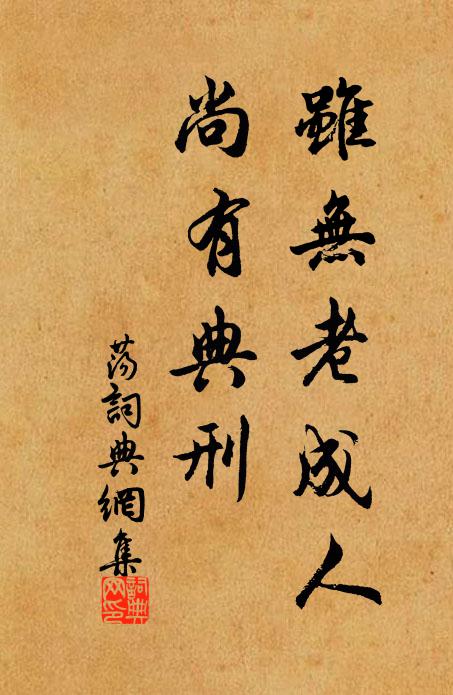 雖無老成人
尚有典刑
蕩詞典網集
詞典网印